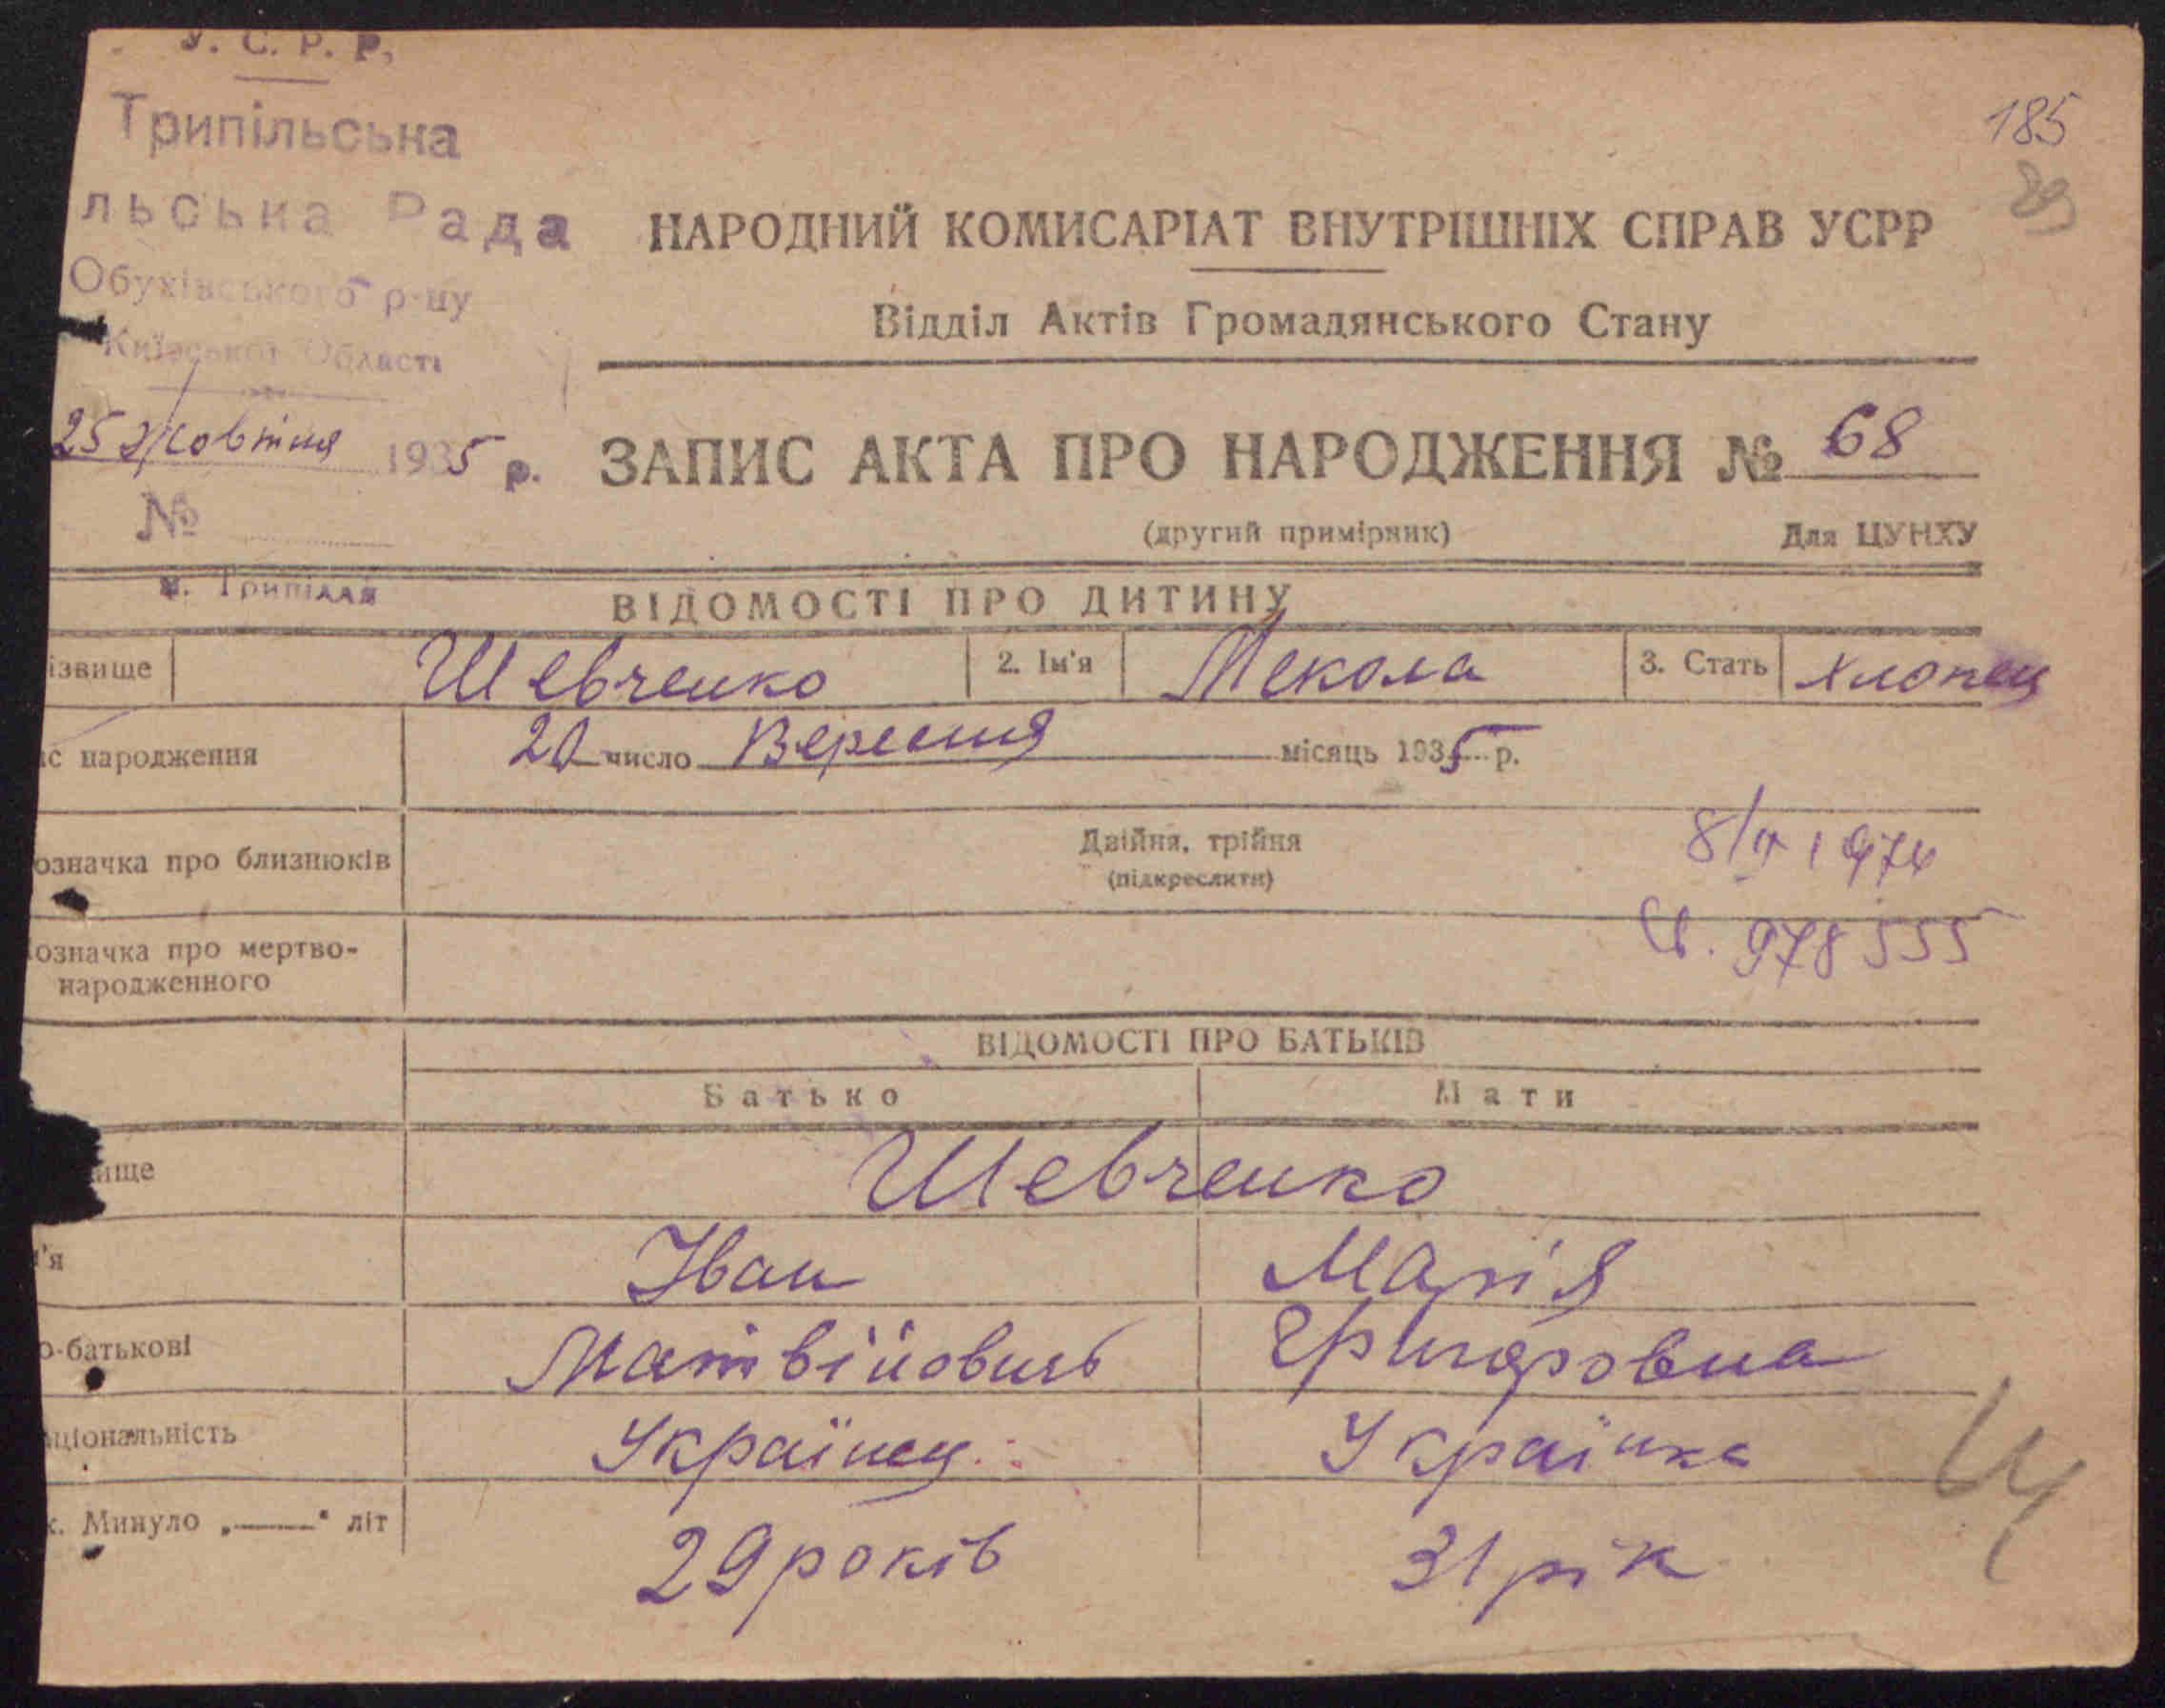 У. С. Р. Р.
Трипільська
льська Рада
Обухівського р-ну
Київської Області
25 Жовтня 1935 р.
№
м. Трипілля
185
89
НАРОДНИЙ КОМИСАРІАТ ВНУТРІШНІХ СПРАВ УСРР
Відділ Актів Громадянського Стану
ЗАПИС АКТА ПРО НАРОДЖЕННЯ № 68
(другий примірник) Для ЦУНХУ
ВІДОМОСТІ ПРО ДИТИНУ
ізвище Шевченко 2. Ім'я Мекола 3. Стать Хлопец
ас народження 20 число Вересня місяць 1935 р.
означка про близнюків Двійня, трійня
(підкреслити)
8/IV 1974
означка про мертво-
народженного
Св. 978555
ВІДОМОСТІ ПРО БАТЬКІВ
Батько Мати
вище Шевченко
м'я Іван Марія
о-батькові Матвійовичь Григоровна
аціональність Українец Українка
к. Минуло „——" літ 29 років 31 рік